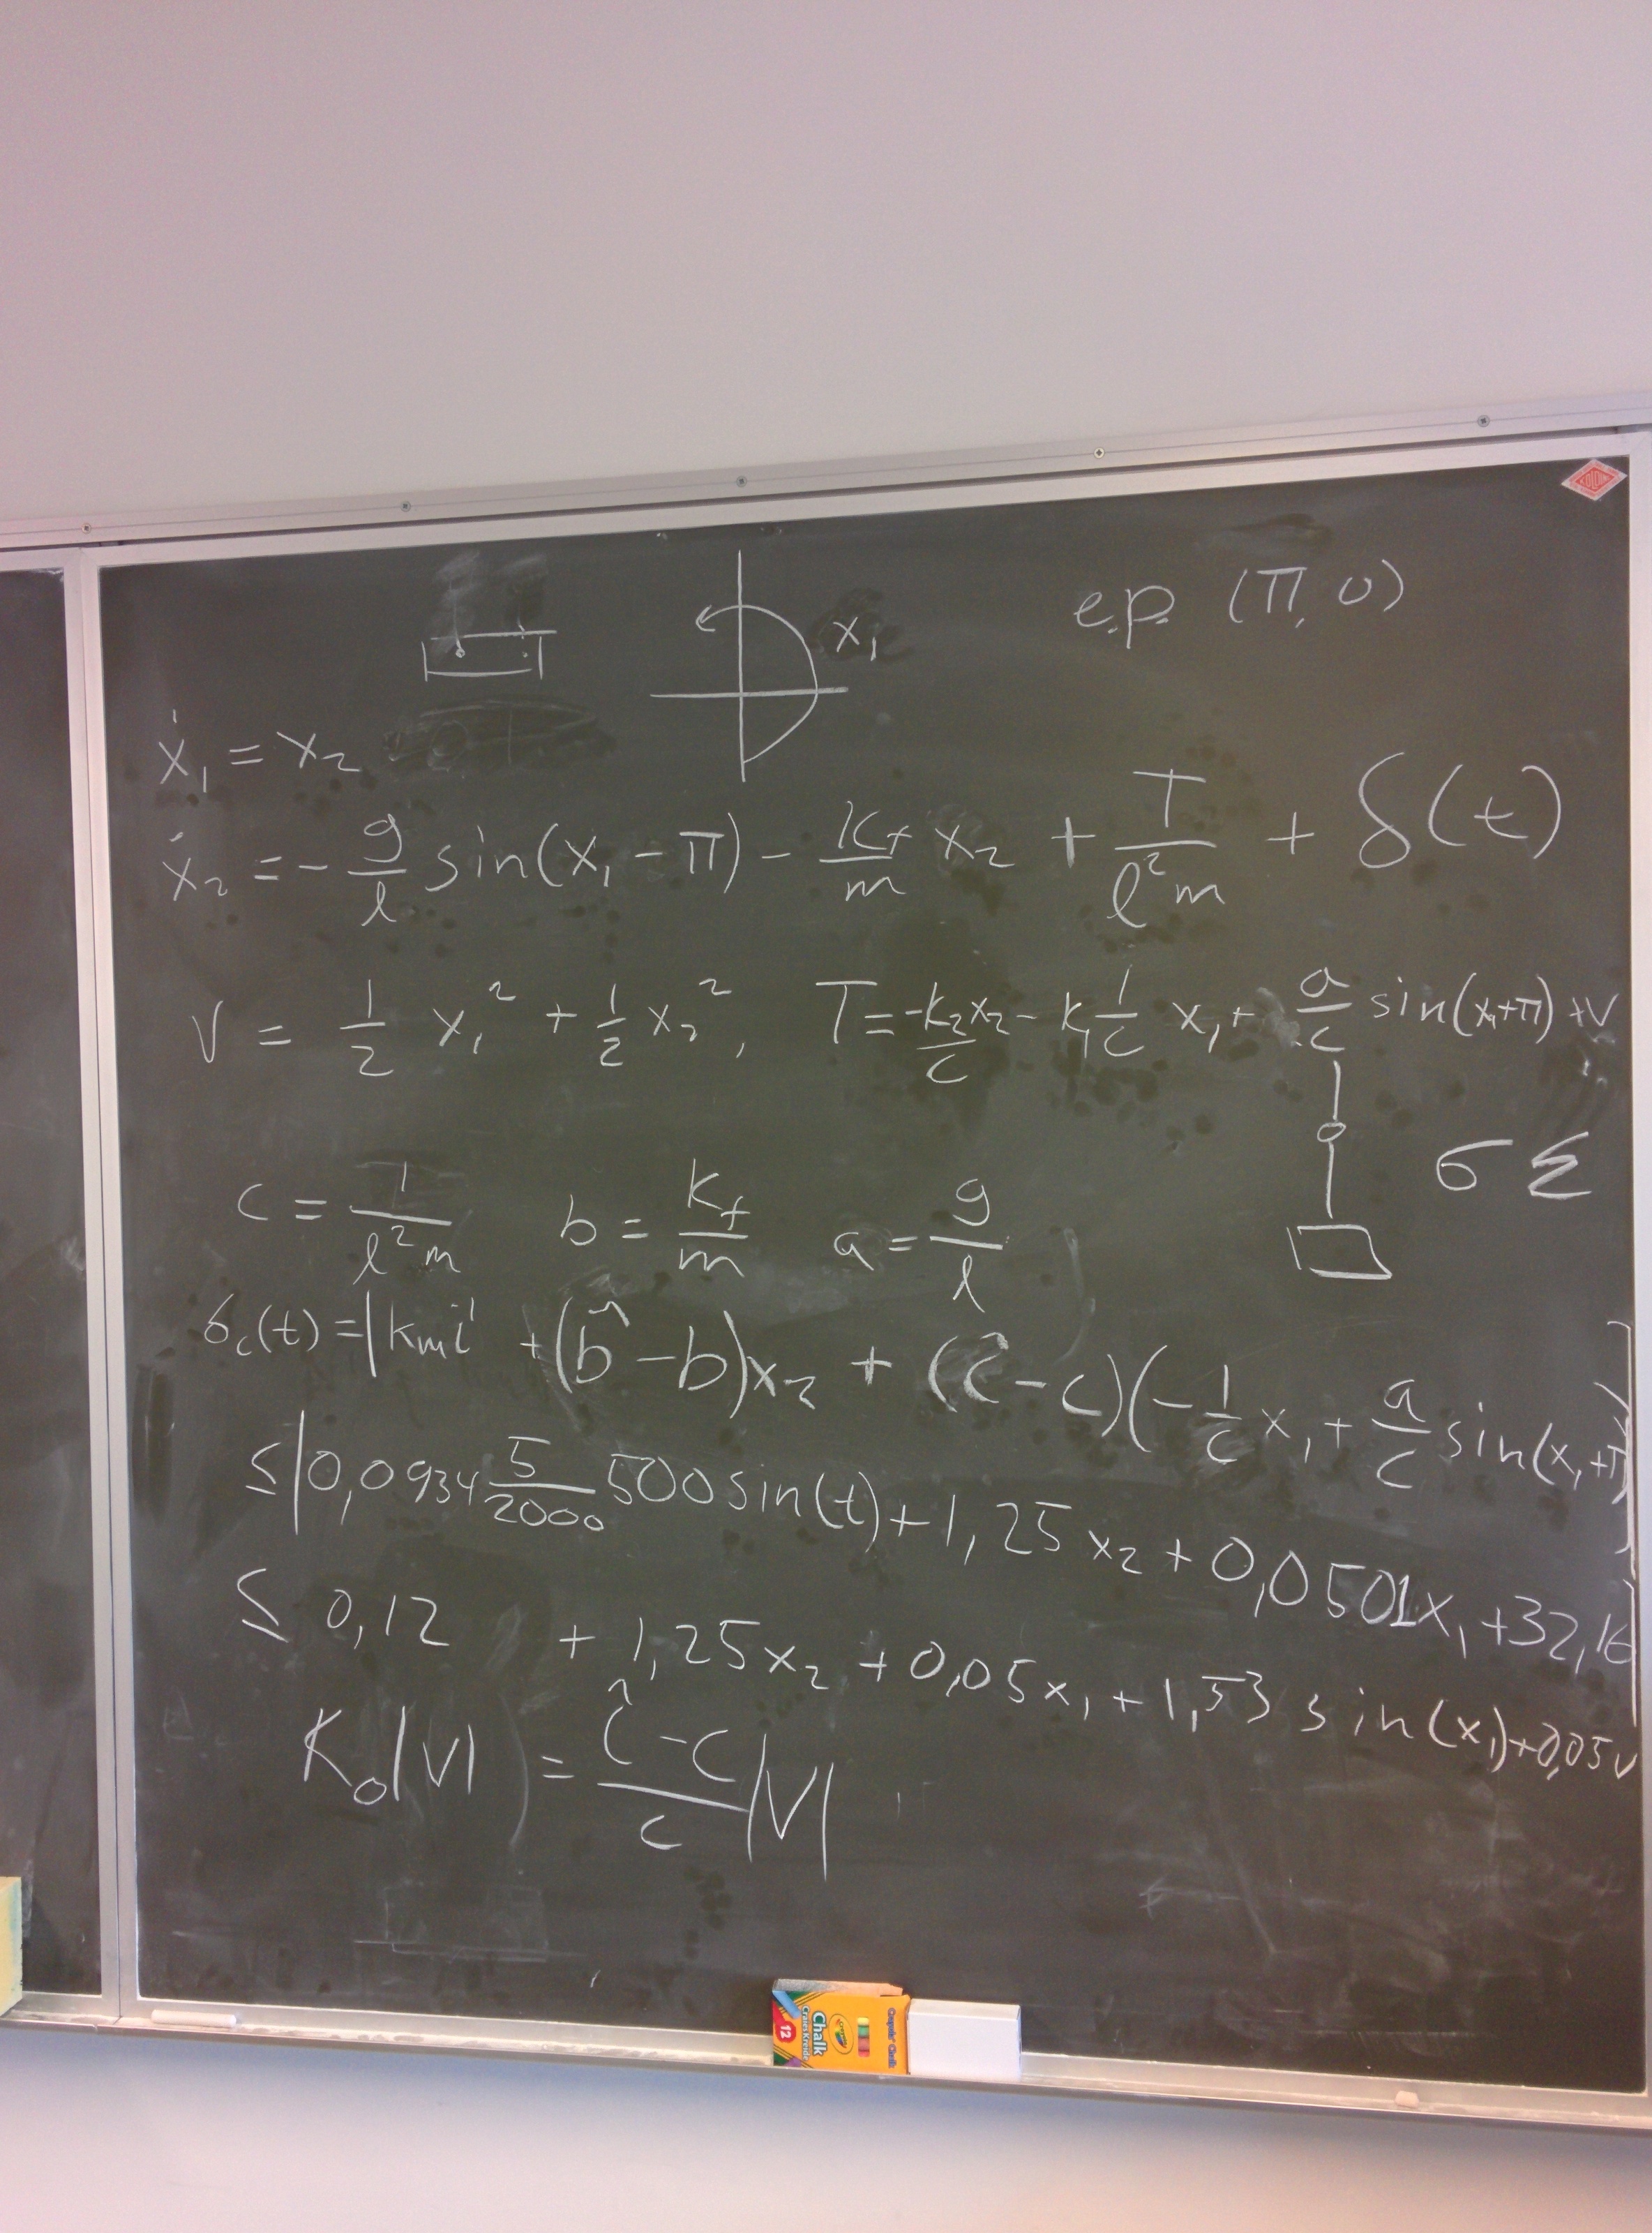 e.p. (π, 0)
x₁
ẋ₁ = x₂
ẋ₂ = - g/l sin(x₁ - π) - k_f/m x₂ + T/(l²m) + δ(t)
V = 1/2 x₁² + 1/2 x₂², T = -k₂x₂/c - k₁ 1/c x₁ + a/c sin(x₁+π) + v
σ Σ
c = 1/(l²m) b = k_f/m a = g/l
δ_c(t) = |kmi + (b̂ - b)x₂ + (ĉ - c)(-1/c x₁ + a/c sin(x₁+π)
≤ |0,0934 5/2000 500 sin(t) + 1,25 x₂ + 0,0501x₁ + 32,16
≤ 0,12 + 1,25x₂ + 0,05x₁ + 1,53 sin(x₁) + 0,05v
K₀|V| = (ĉ - c)/c |V|
12
Chalk
Craies Kreide
Crayola
Crayola Chalk